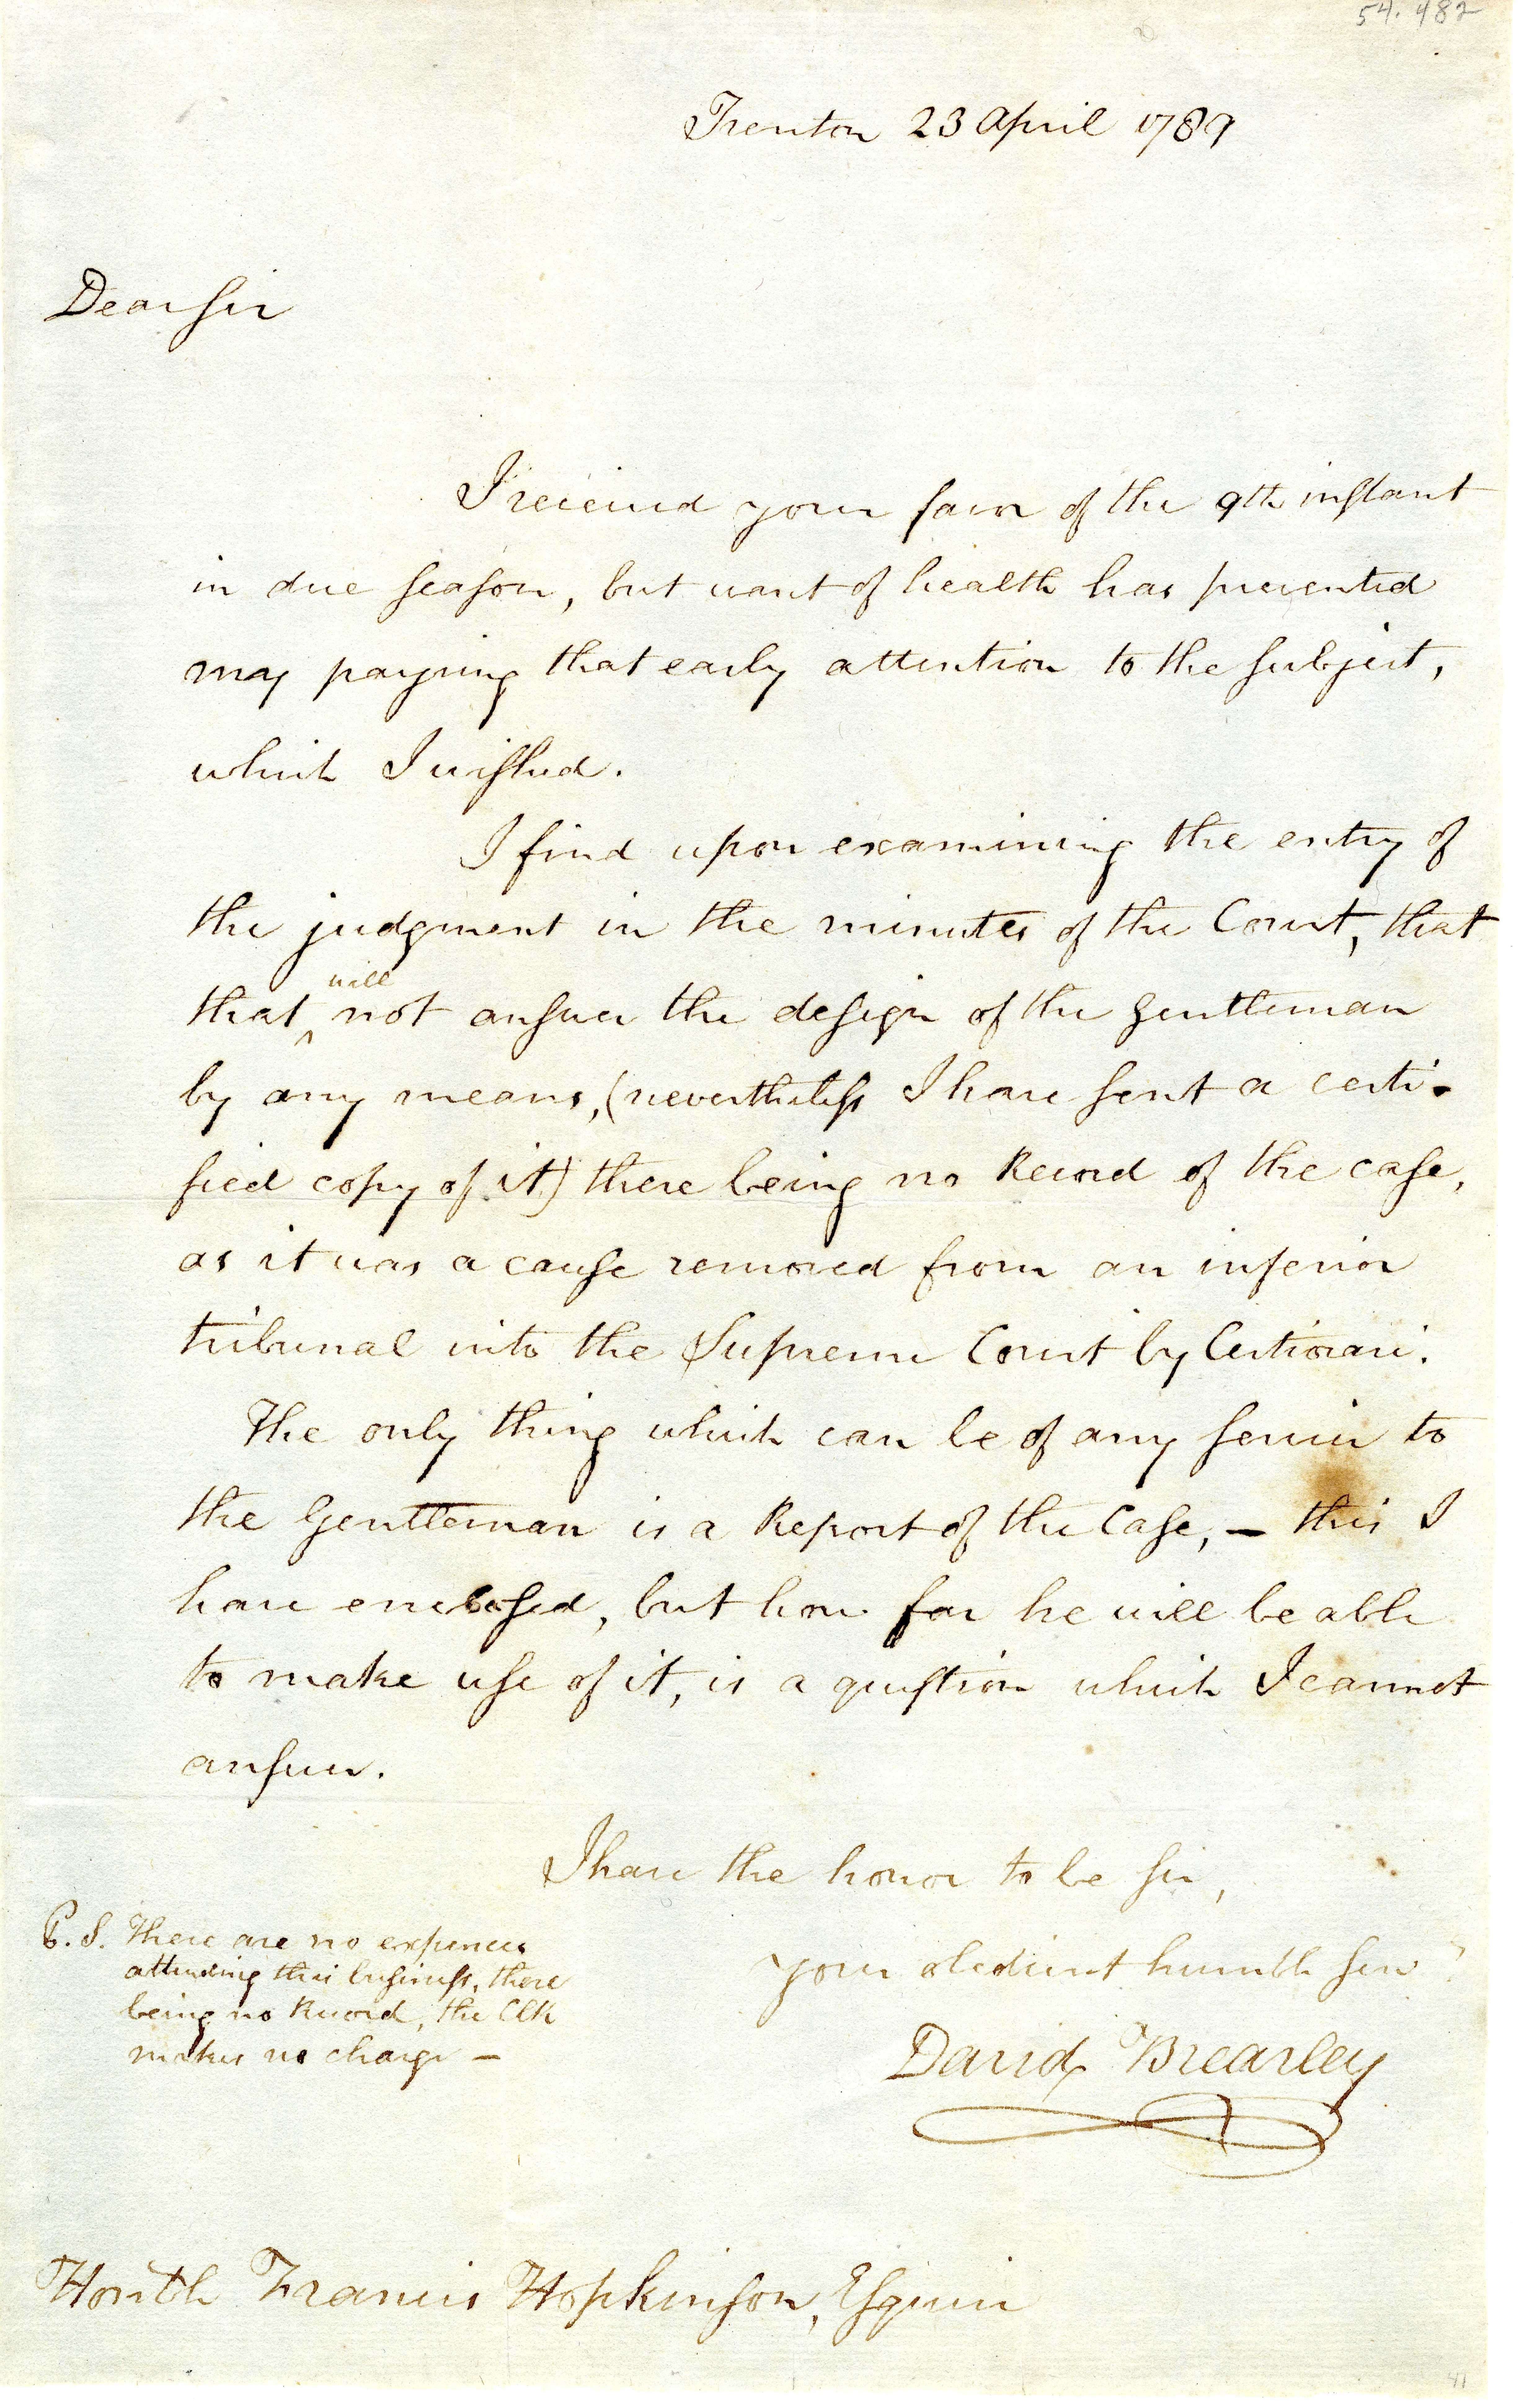 54.482
Trenton 23 April 1789
Dear Sir
I received your favor of the 9th instant
in due season, but want of health has prevented
my paying that early attention to the subject,
which I wished.
I find upon examining the entry of
the judgment in the minutes of the Court, that
that will not answer the design of the gentleman
by any means, (nevertheless I have sent a certi-
fied copy of it) there being no Record of the case,
as it was a cause removed from an inferior
tribunal into the Supreme Court by Certiorari.
The only thing which can be of any service to
the Gentleman is a Report of the Case, — this I
have enclosed, but how far he will be able
to make use of it, is a question which I cannot
answer.
I have the honor to be Sir,
your obedient humble serv.t
David Brearley
P.S. There are no expences
attending this business, there
being no Record, the Clk
makes no charge —
Hon'ble Francis Hopkinson, Esquire
41